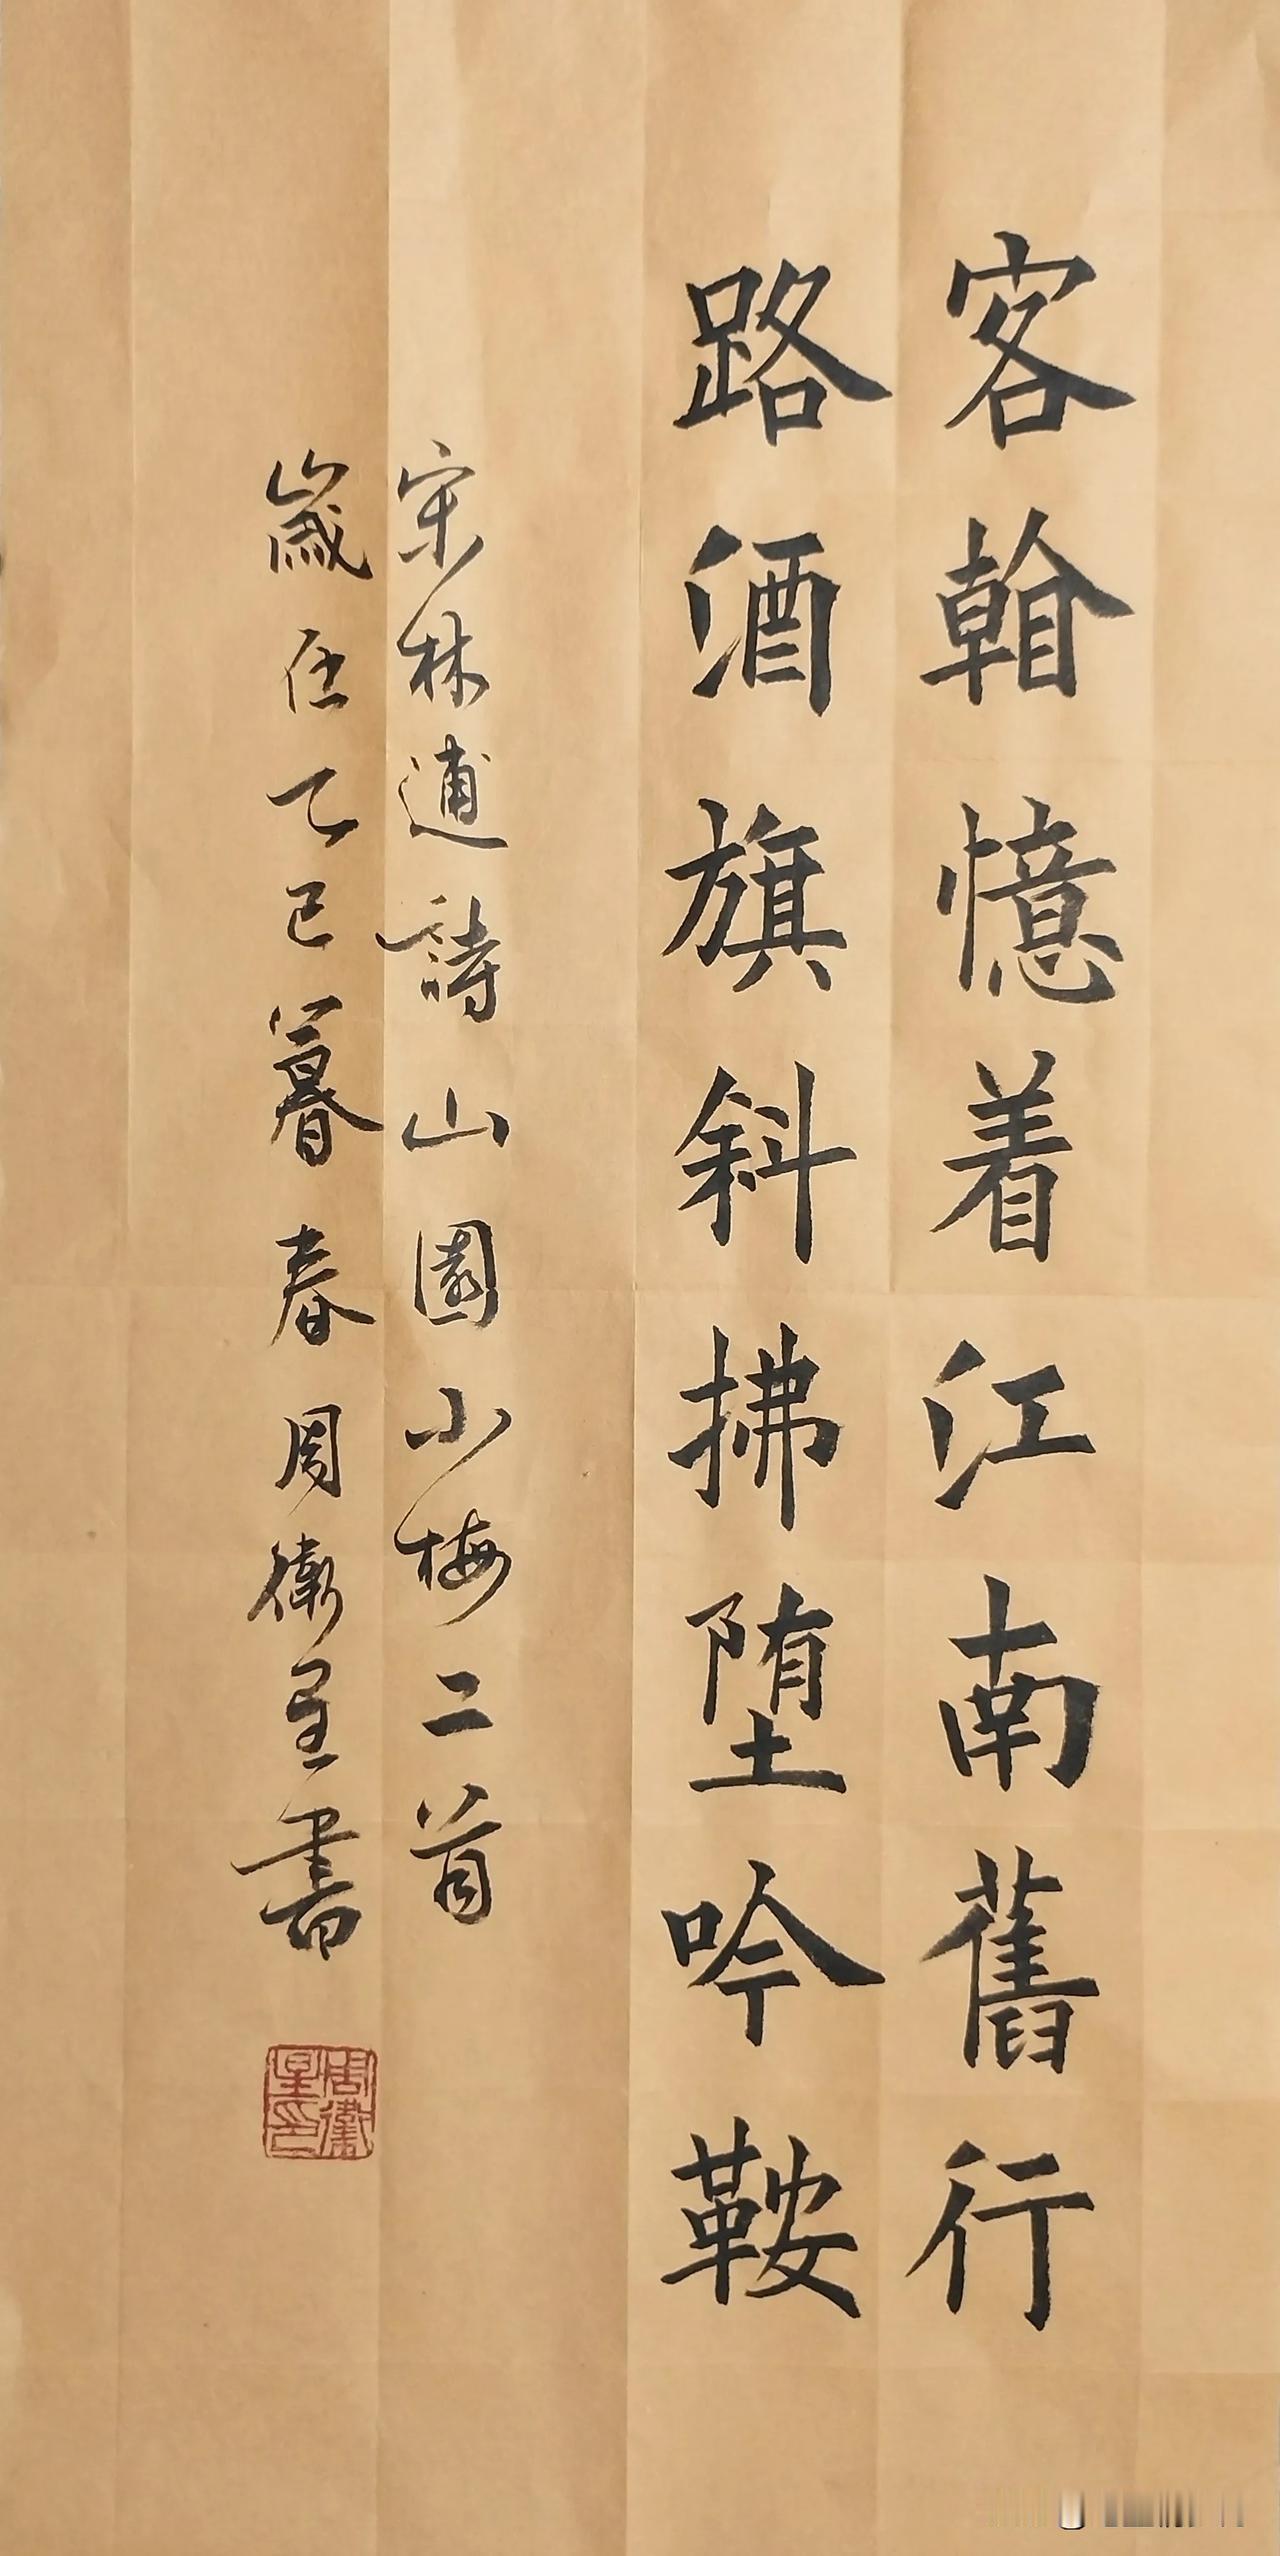 客翰憶着江南舊行
路酒旗斜拂堕吟鞍
宋林逋詩山園小梅二首
歲在乙巳暮春周衛星書
周衛星印